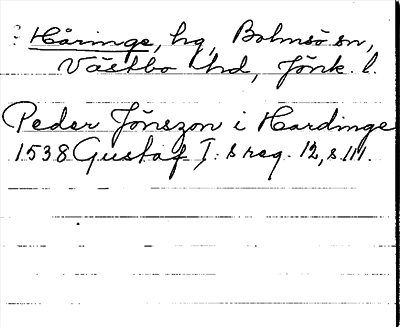 ? Håringe, hg, Bolmsö sn,
Västbo hd, Jönk. l.
Peder Jönszon i Hardinge
1538 Gustaf I:s reg. 12, s. 111.